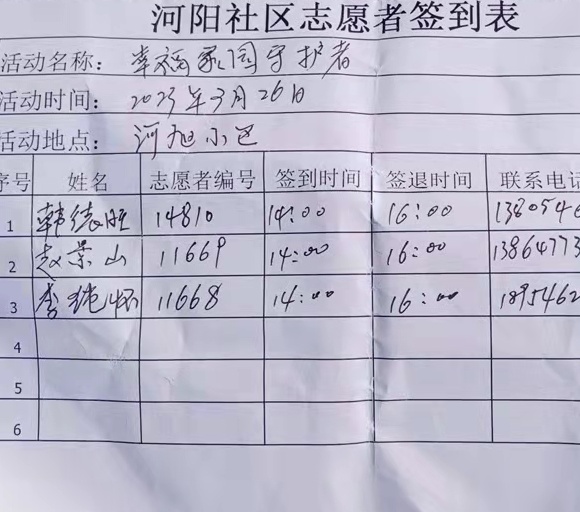 河阳社区志愿者签到表
活动名称：幸福家园守护者
活动时间：2023年3月26日
活动地点：河旭小区
序号 姓名 志愿者编号 签到时间 签退时间 联系电话
1 韩德胜 14810 14:00 16:00 1380546
2 赵景山 11669 14:00 16:00 13864773
3 李纯怀 11668 14:00 16:00 1895462
4
5
6